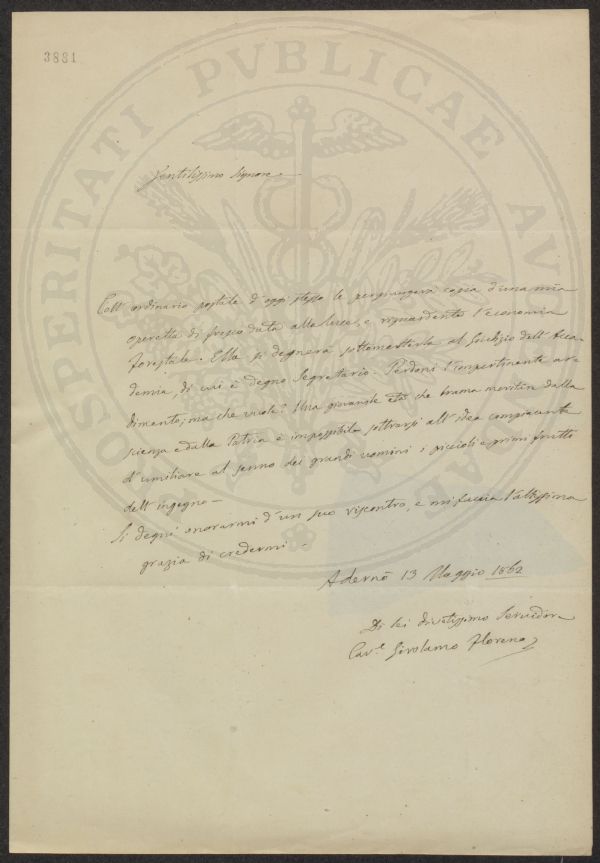 3881
PROSPERITATI PVBLICAE AV
Gentilissimo Signore
Coll' ordinario postale d'oggi stesso le perverrà copia d'una mia
operetta di fresco data alla luce, e riguardante l'economia
forestale. Ella si degnerà sottometterla al Giudizio dell'Acca-
demia, di cui è degno Segretario. Perdoni l'impertinente ar-
dimento; ma che vuole? Una giovanile età che brama meritar dalla
scienza e dalla Patria è impossibile sottrarsi all'idea compiacente
d'umiliare al senno dei grandi uomini i piccioli e primi frutti
dell'ingegno—
Si degni onorarmi d'un suo riscontro, e mi faccia l'altissima
grazia di credermi.
Adernò 13 Maggio 1862
Di lei divotissimo Servidore
Cav.e Girolamo Floreno